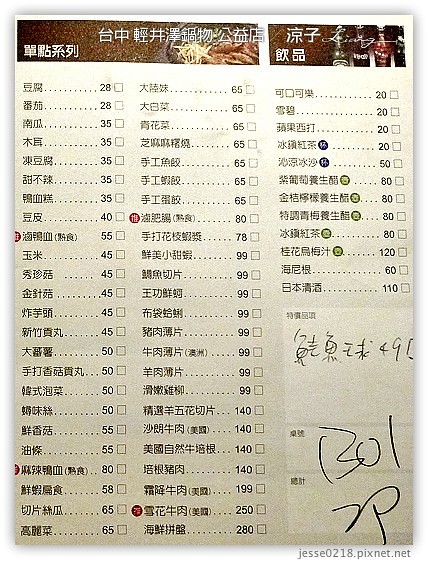 台中 輕井澤鍋物 公益店
涼子
單點系列
豆腐 28
番茄 28
南瓜 35
木耳 35
凍豆腐 35
甜不辣 35
鴨血糕 35
豆皮 40
推 滷鴨血(熟食) 55
玉米 45
秀珍菇 45
金針菇 45
炸芋頭 45
新竹貢丸 45
大蕃薯 50
手打香菇貢丸 50
韓式泡菜 50
蟳味絲 50
鮮香菇 55
油條 55
推 麻辣鴨血(熟食) 80
鮮蝦扁食 58
切片絲瓜 65
高麗菜 65
大陸妹 65
大白菜 65
青花菜 65
芝麻麻糬燒 65
手工魚餃 65
手工蝦餃 65
手工蛋餃 65
推 滷肥腸(熟食) 80
手打花枝蝦漿 78
鮮美小甜蝦 99
鯛魚切片 99
王功鮮蚵 99
布袋蛤蜊 99
豬肉薄片 99
牛肉薄片(澳洲) 99
羊肉薄片 99
滑嫩雞柳 99
精選羊五花切片 140
沙朗牛肉(美國) 140
美國自然牛培根 140
培根豬肉 140
霜降牛肉(美國) 199
荐 雪花牛肉(美國) 250
海鮮拼盤 280
飲品
可口可樂 20
雪碧 20
蘋果西打 20
冰鎮紅茶 杯 20
沁涼冰沙 杯 50
紫葡萄養生醋 壺 80
金桔檸檬養生醋 壺 80
特調青梅養生醋 壺 80
冰鎮紅茶 壺 80
桂花烏梅汁 壺 120
海尼根 60
日本清酒 110
特價品項
桌號
B01
總計
2P
jesse0218.pixnet.net